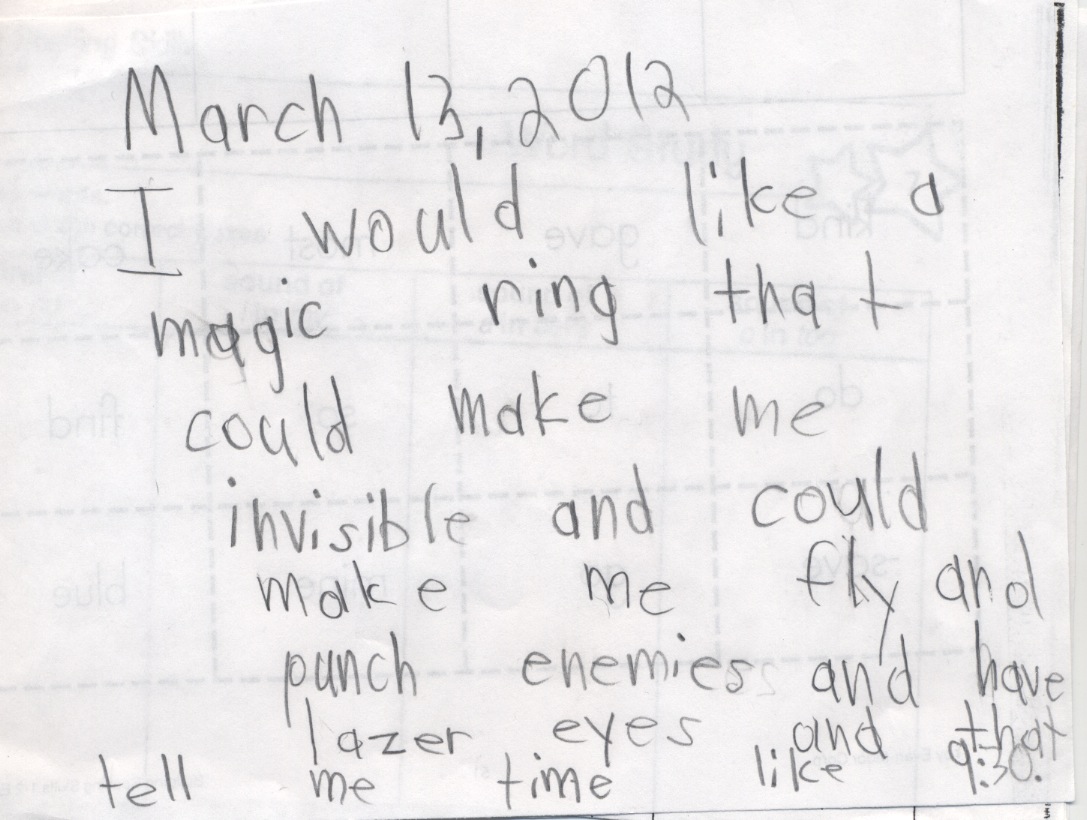 March 13, 2012
I would like a
magic ring that
could make me
invisible and could
make me fly and
punch enemies and have
lazer eyes and that
tell me time like 9:30.